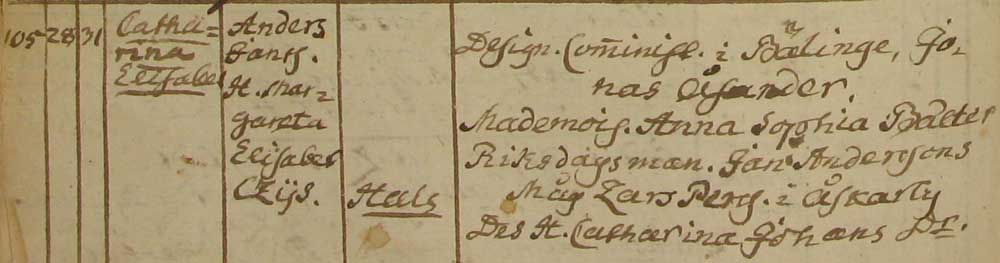 105 28 31 Catha=
rina
Elisabet
Anders
Jans.
H. Mar=
gareta
Elisabet
Hals
Design. Com̄inist. i Bälinge, Jo,
nas Åsander.
Mademois. Anna Sophia Bælter
Riksdagsman. Jan Anderssons
Måg Lars Pers. i Åskarby
Des H. Catharina Johans Dr.